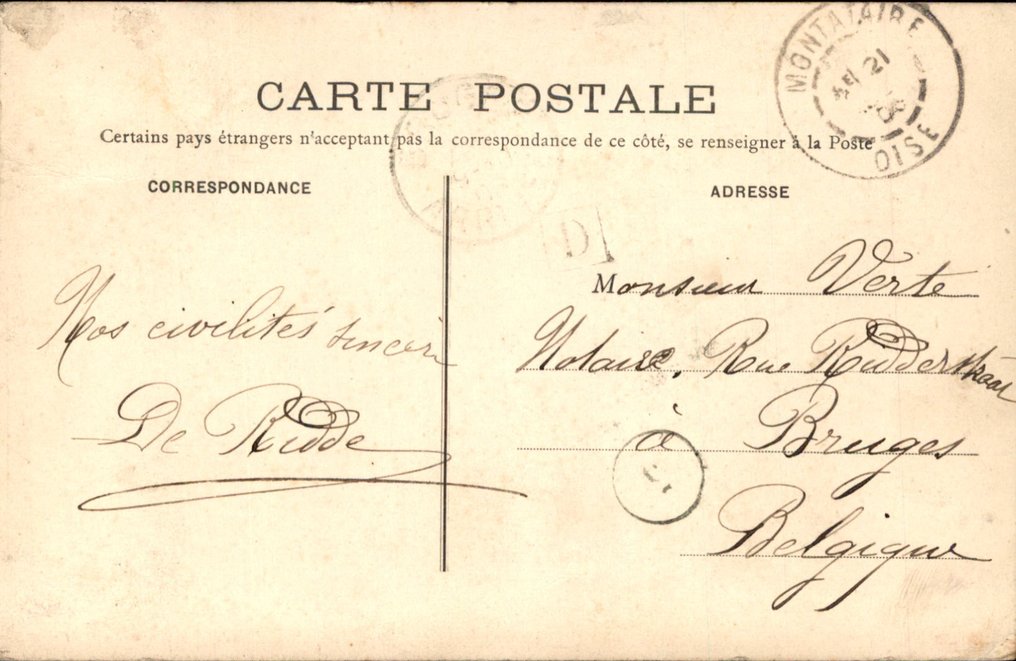 CARTE POSTALE
Certains pays étrangers n'acceptant pas la correspondance de ce côté, se renseigner à la Poste
CORRESPONDANCE
Nos civilités
De Ridde
ADRESSE
Monsieur Verte
Notaire, Rue Ridderstraat
à Bruges
Belgique
MONTATAIRE
21
OISE
D